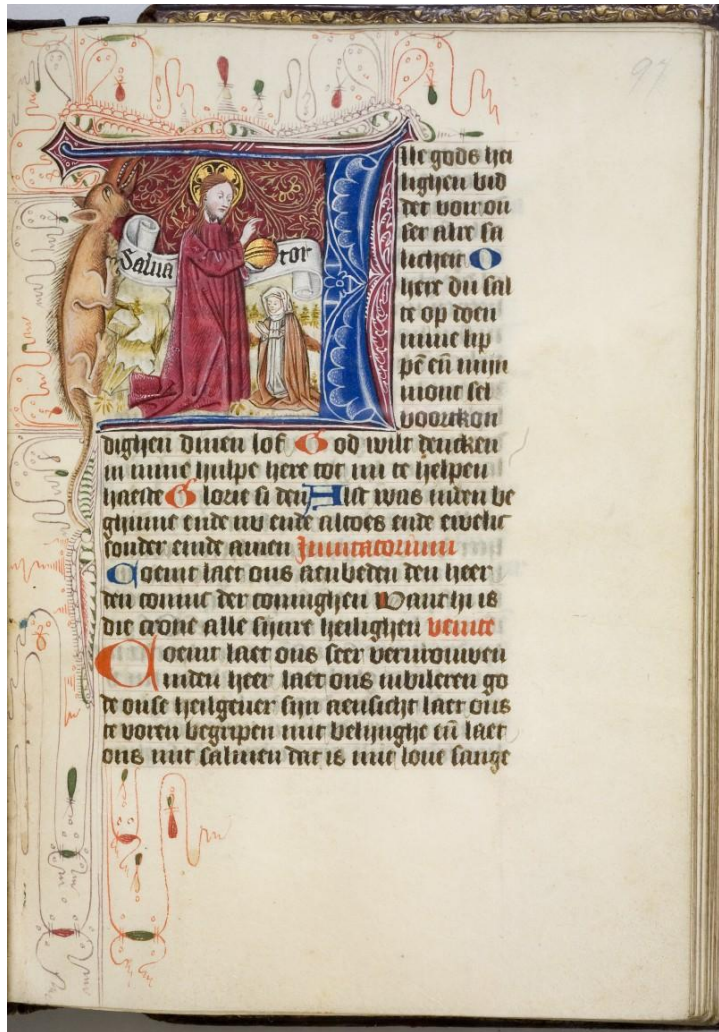 97
Salua tor
Alle gods hei
lighen bid
det voir on
ser alre sa
licheit O
here du sal
te op doen
mine lip
pē eñ mijn
mont sel
voorkon
dighen dinen lof God wilt dencken
in mine hulpe here tot mi te helpen
haeste Glorie si den Alst was inden be
ghinne ende nu ende altoes ende ewelic
sonder einde amen Inuitatorium
Coemt laet ons aenbeden den heer
den coninc der coninghen Want hi is
die crone alle sijnre heilighen venite
Coemt laet ons seer verurouwen
inden heer laet ons iubileren go
de onse heilgeuer sijn aensicht laet ons
te voren begripen mit belijnghe eñ laet
ons mit salmen dat is mit loue sange